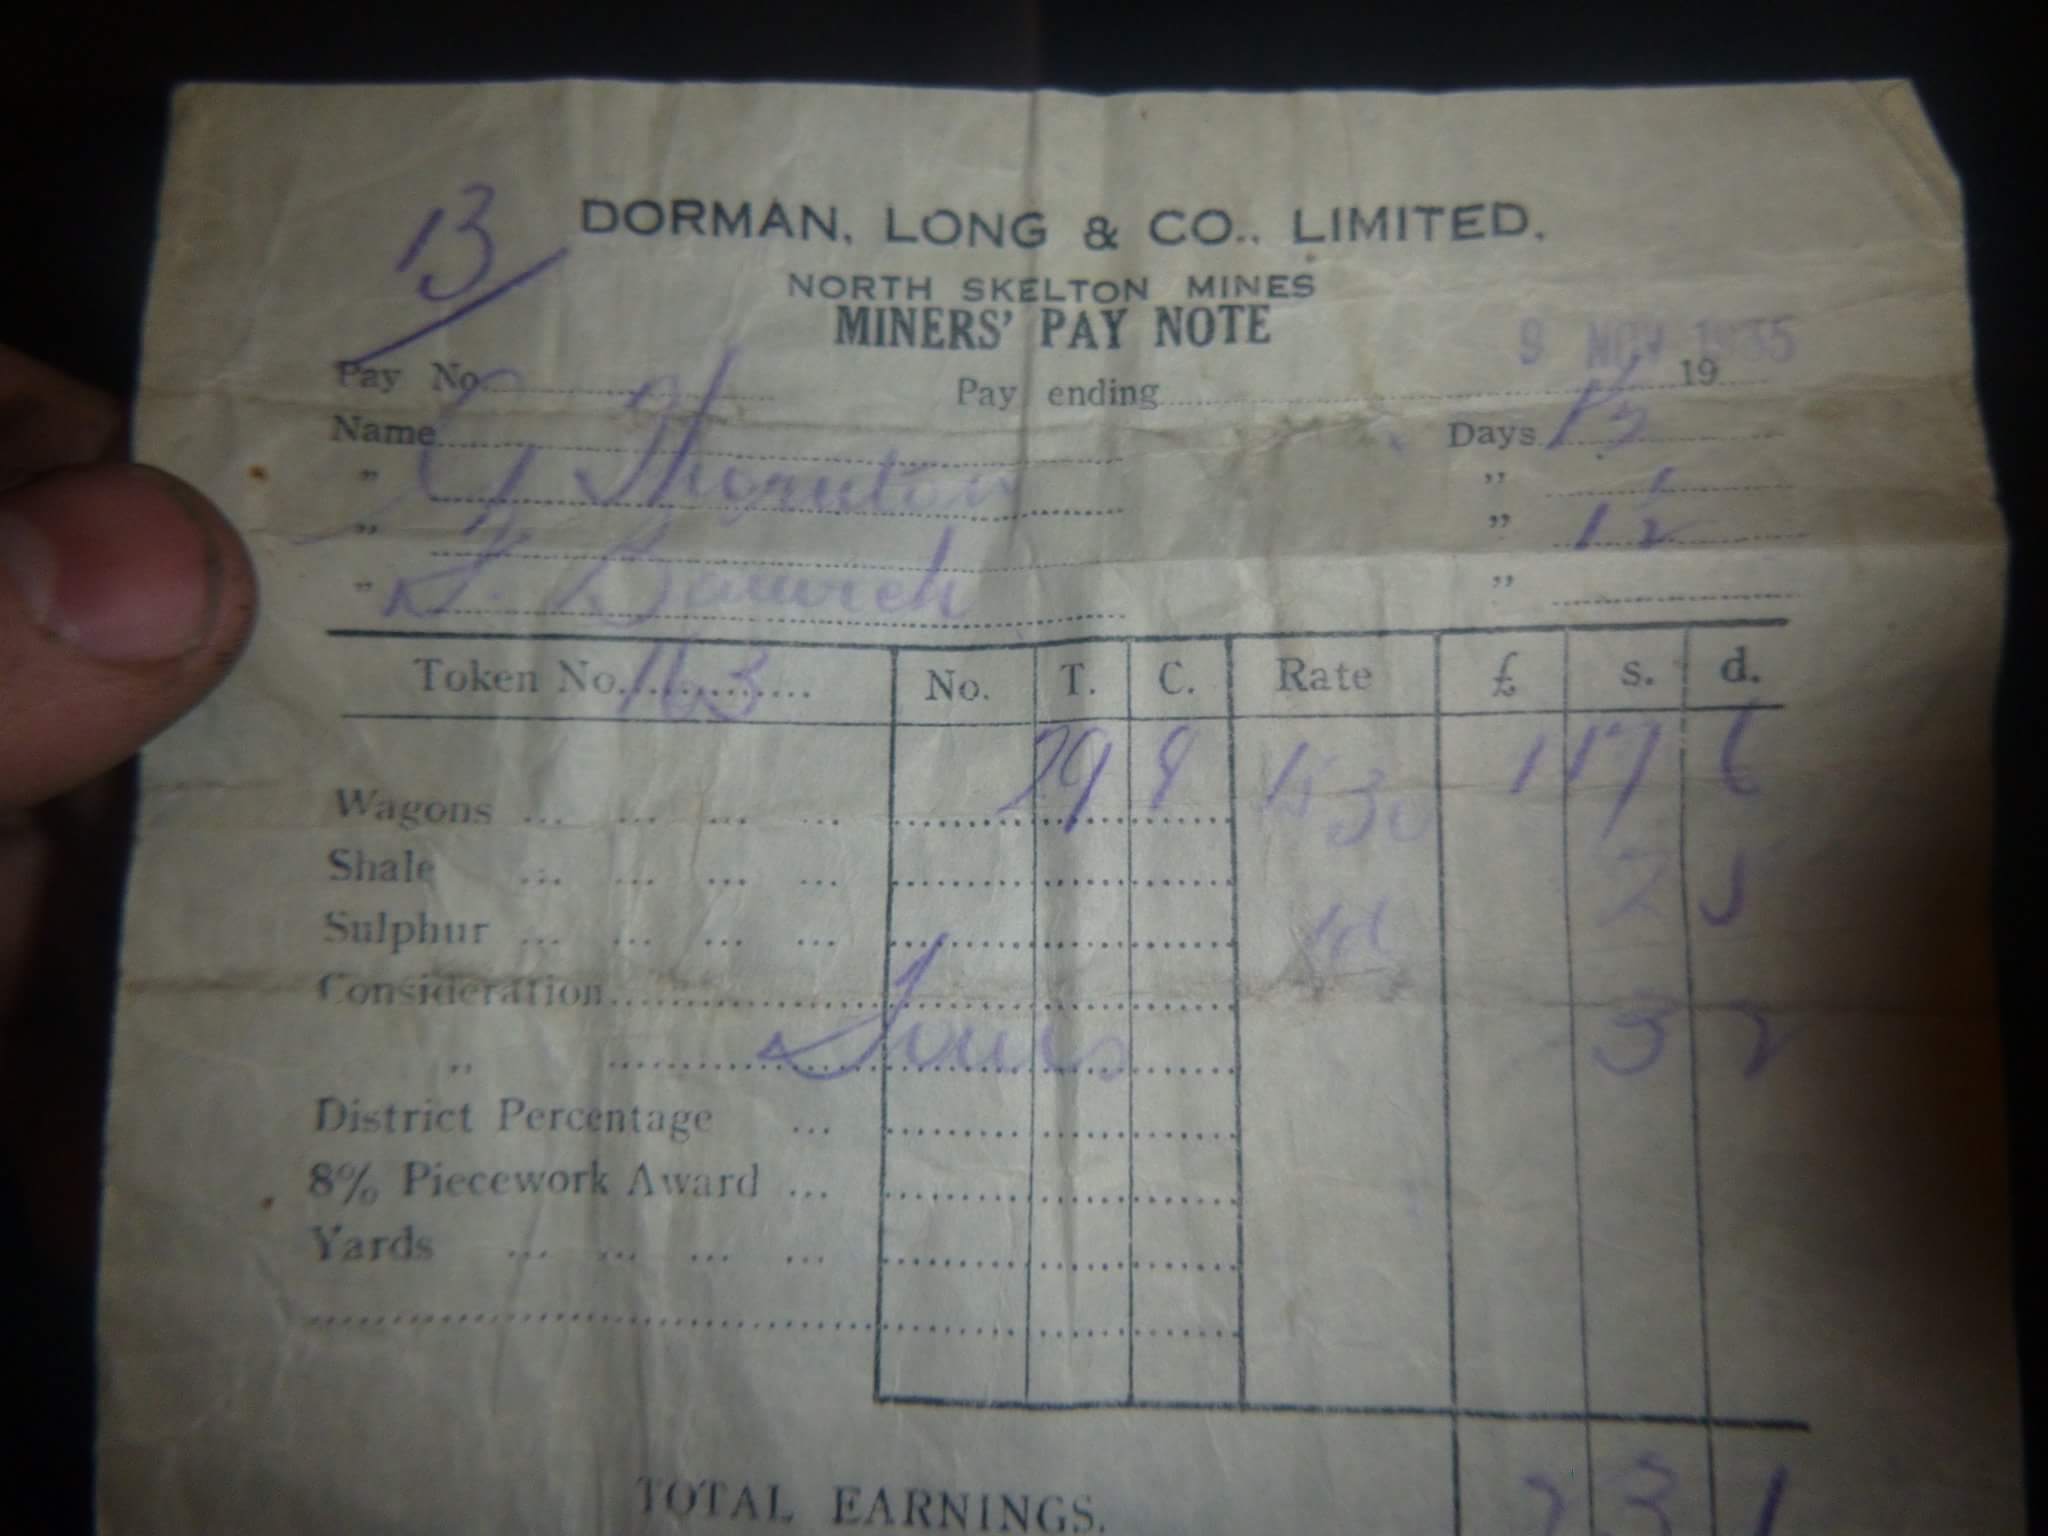 13
DORMAN, LONG & CO., LIMITED.
NORTH SKELTON MINES
MINERS' PAY NOTE
9 NOV 1935
Pay No. Pay ending 19
Name Days
" G Thornton "
" " 1
" "
Token No. 163 No. T. C. Rate £ s. d.
Wagons ... ... ... ... 29 8 1 17 6
Shale ... ... ... ... 2 5
Sulphur ... ... ... ... 1d
Consideration
" 3 2
District Percentage ...
8% Piecework Award ...
Yards ... ... ... ...
TOTAL EARNINGS. 2 3 1